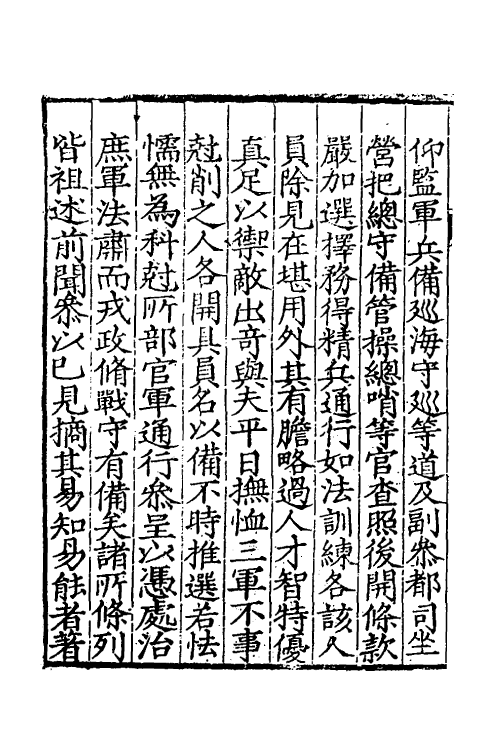 仰監軍兵備廵海守廵等道及副叅都司坐
營把緫守備管操緫哨等官查照後開條款
嚴加選擇務得精兵通行如法訓練各該人
員除見在堪用外其有膽略過人才智特優
真足以禦敵出奇與夫平日撫恤三軍不事
尅削之人各開具員名以備不時推選若怯
懦無為科尅所部官軍通行叅呈以憑處治
庶軍法肅而戎政脩戰守有備矣諸所條列
皆祖述前聞叅以己見摘其易知易能者著